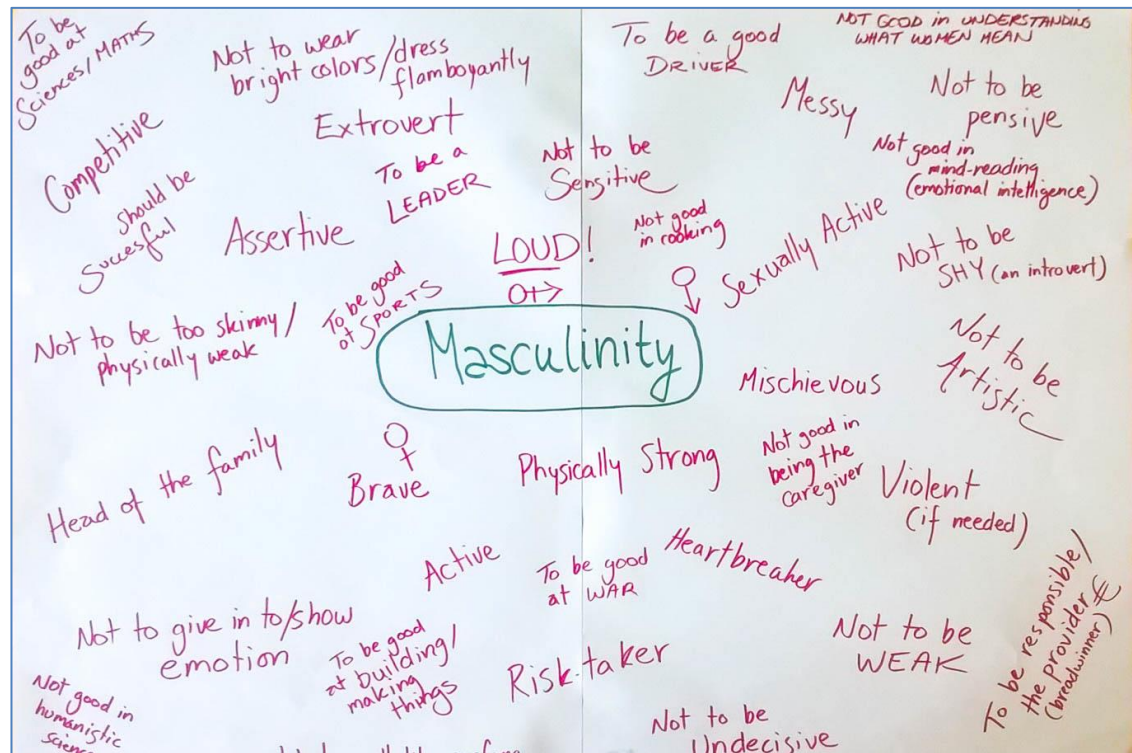 To be
good at
Sciences/MATHS
Not to wear
bright colors/dress
flamboyantly
To be a good
DRIVER
NOT GOOD in UNDERSTANDING
WHAT WOMEN MEAN
Competitive
Extrovert
Messy
Not to be
pensive
Should be
Succesful
Assertive
To be a
LEADER
Not to be
Sensitive
Not good in
mind-reading
(emotional intelligence)
LOUD!
Not good
in cooking
Sexually Active
Not to be
SHY (an introvert)
Not to be too skinny/
physically weak
To be good
at SPORTS
Masculinity
Mischievous
Not to be
Artistic
Head of the family
Brave
Physically Strong
Not good in
being the
caregiver
Violent
(if needed)
Active
To be good
at WAR
Heartbreaker
Not to give in to/show
emotion
To be good
at building/
making
things
Risk-taker
Not to be
WEAK
To be responsible/
the provider €
(breadwinner)
Not good in
humanistic
Not to be
Undecisive